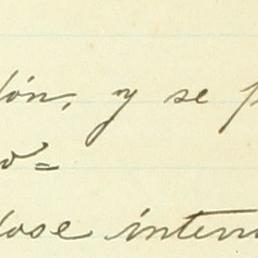 ón, y se
o=
dose intern